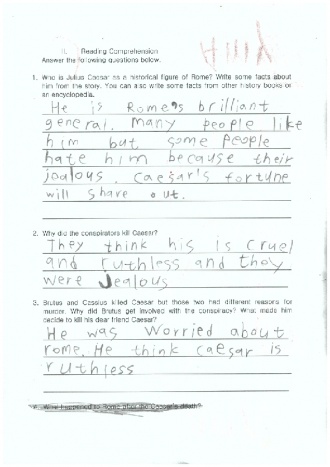 II. Reading Comprehension
Answer the following questions below.
1. Who is Julius Caesar as a historical figure of Rome? Write some facts about
him from the story. You can also write some facts from other history books or
an encyclopedia.
He is Rome's brilliant
general. Many people like
him but some people
hate him because their
jealous. Caesar's fortune
will share out.
2. Why did the conspirators kill Caesar?
They think his is cruel
and ruthless and they
were Jealous
3. Brutus and Cassius killed Caesar but those two had different reasons for
murder. Why did Brutus get involved with the conspiracy? What made him
decide to kill his dear friend Caesar?
He was worried about
rome. He think caesar is
ruthless
4. Why happened to Rome after the Caesar's death?